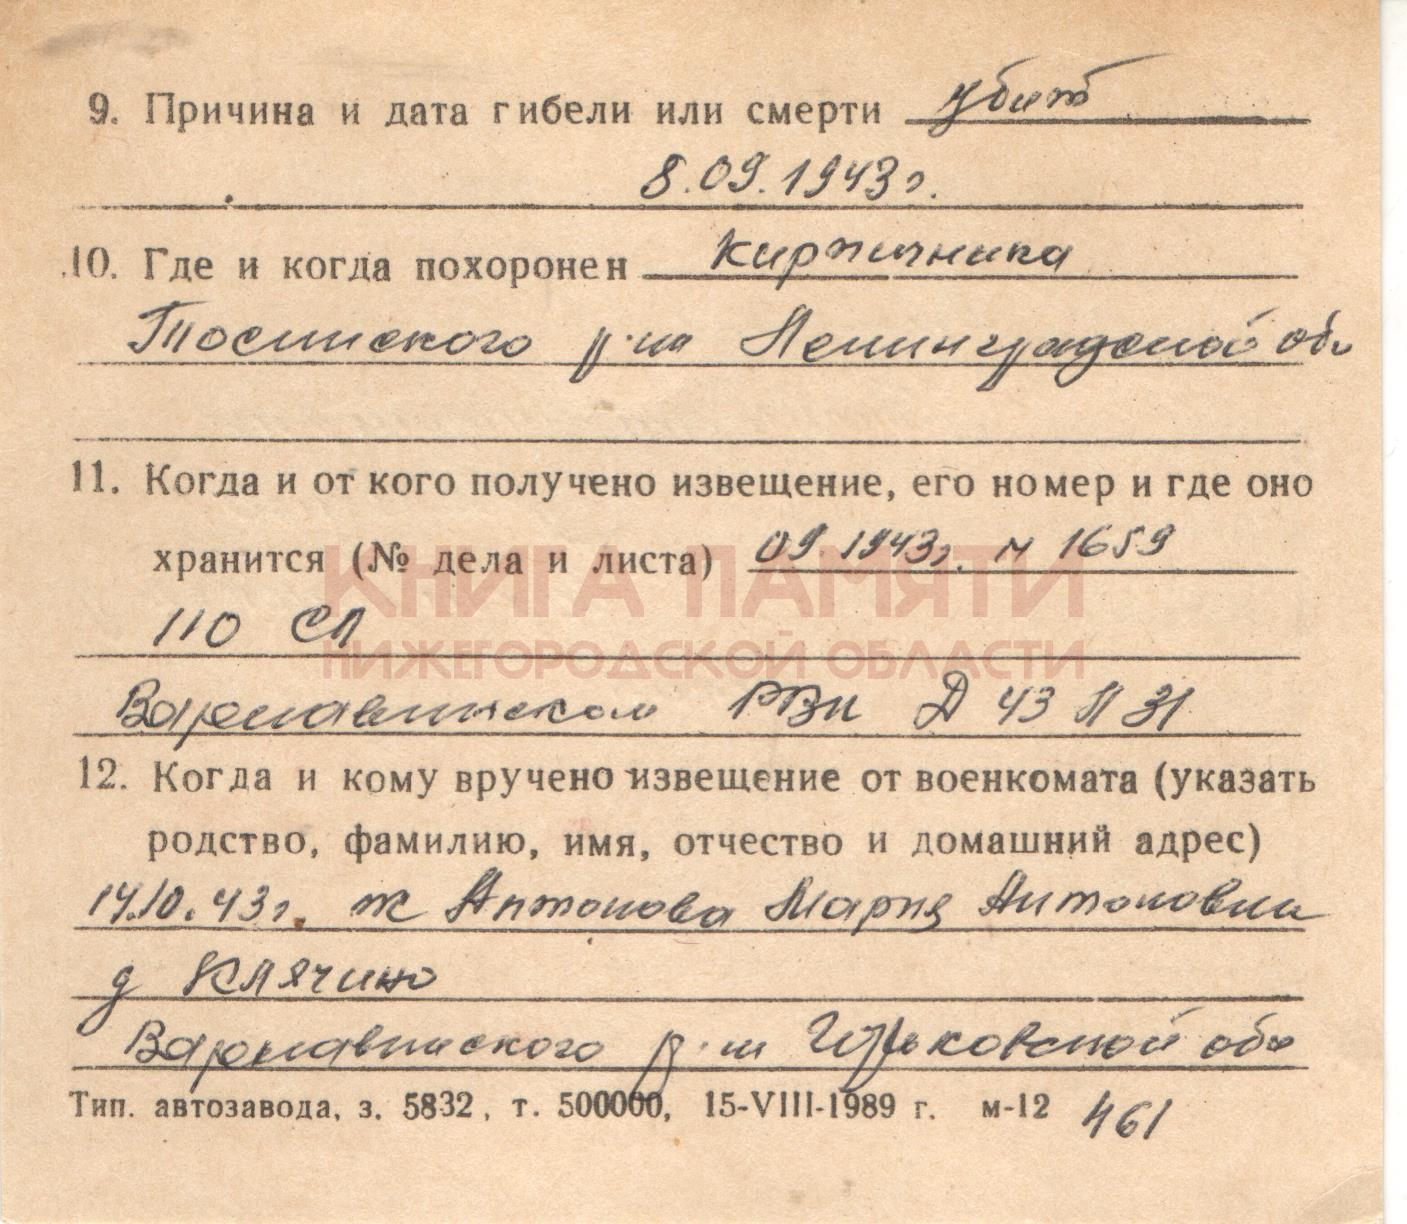 9. Причина и дата гибели или смерти убит
8.09.1943г.
10. Где и когда похоронен Кирпичника
Тоснинского р-на Ленинградской обл
11. Когда и от кого получено извещение, его номер и где оно
хранится (№ дела и листа) 09 1943г. н 1659
КНИГА ПАМЯТИ
110 СП
НИЖЕГОРОДСКОЙ ОБЛАСТИ
Варнавинском РВК Д 43 Л 31
12. Когда и кому вручено извещение от военкомата (указать
родство, фамилию, имя, отчество и домашний адрес)
14.10.43г. ж Антонова Мария Антоновна
д Клячино
Варнавинского р-на Горьковской обл
Тип. автозавода, з. 5832, т. 500000, 15-VIII-1989 г. м-12 461